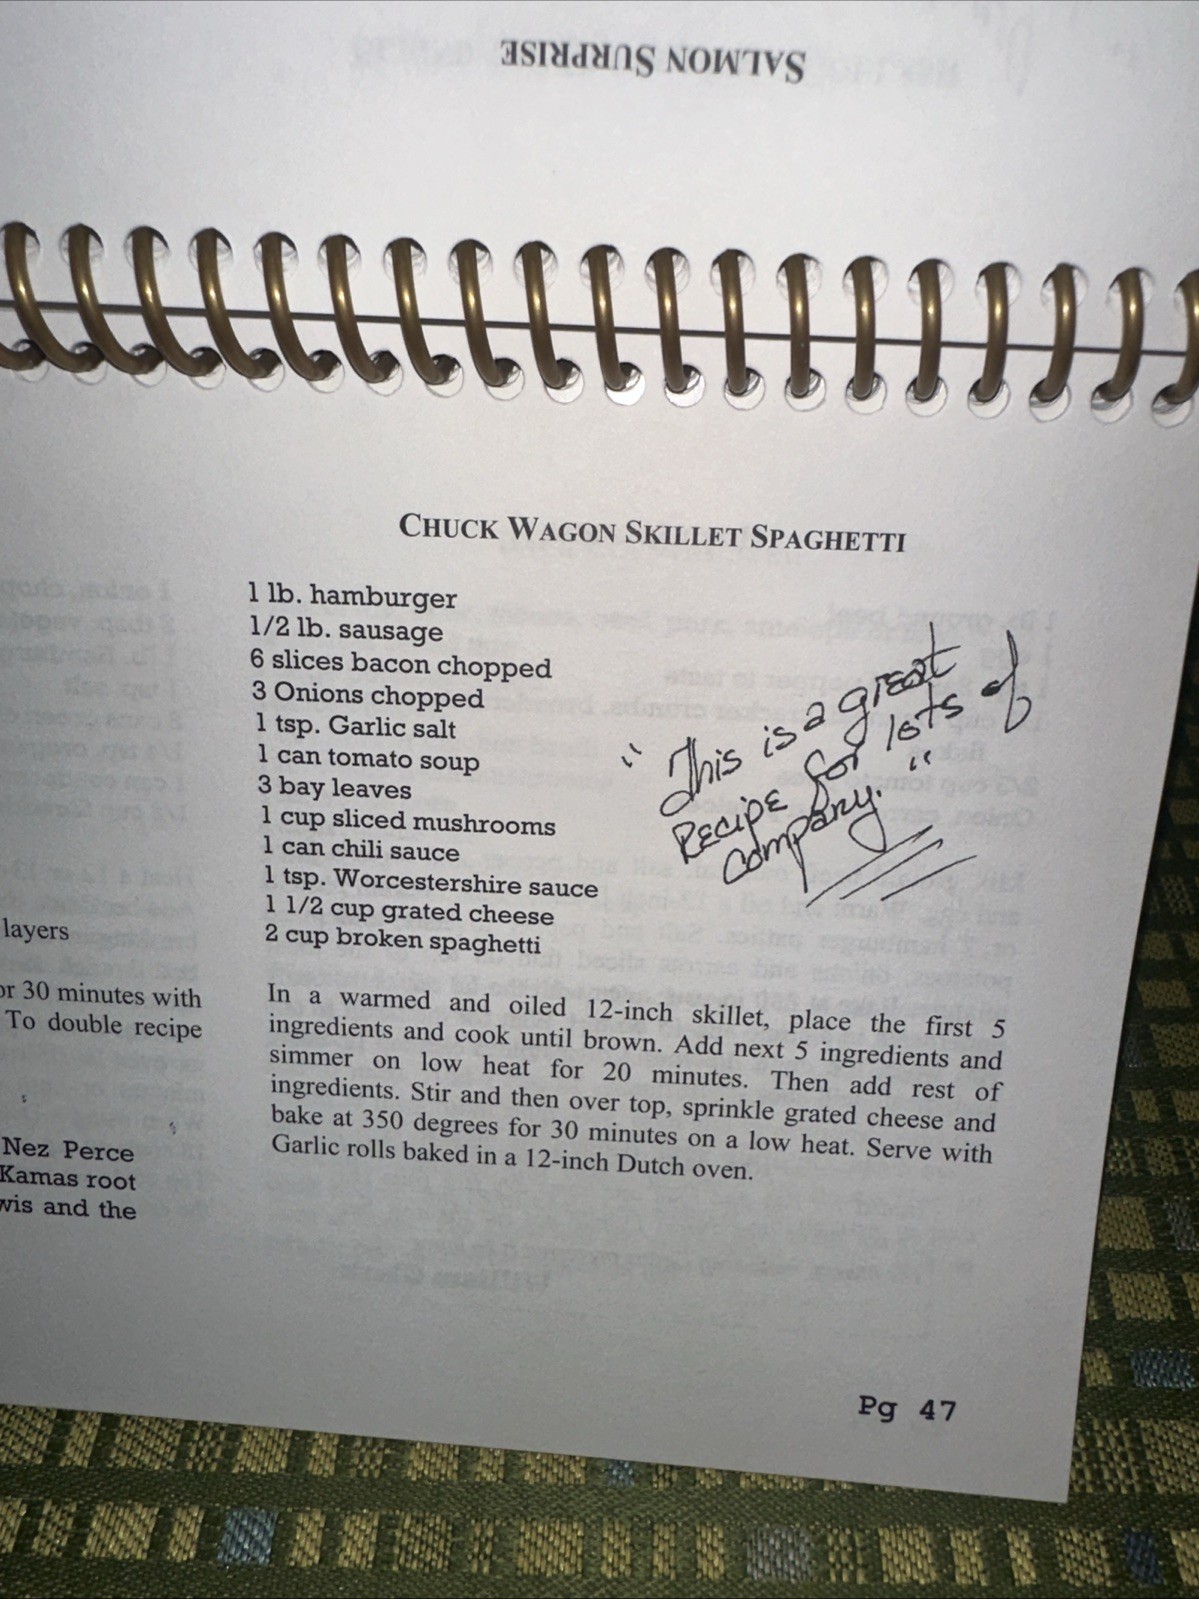 SALMON SURPRISE
CHUCK WAGON SKILLET SPAGHETTI
1 lb. hamburger
1/2 lb. sausage
6 slices bacon chopped
3 Onions chopped
1 tsp. Garlic salt
1 can tomato soup
3 bay leaves
1 cup sliced mushrooms
1 can chili sauce
1 tsp. Worcestershire sauce
1 1/2 cup grated cheese
2 cup broken spaghetti
"This is a great
Recipe for lots of
company."
In a warmed and oiled 12-inch skillet, place the first 5
ingredients and cook until brown. Add next 5 ingredients and
simmer on low heat for 20 minutes. Then add rest of
ingredients. Stir and then over top, sprinkle grated cheese and
bake at 350 degrees for 30 minutes on a low heat. Serve with
Garlic rolls baked in a 12-inch Dutch oven.
layers
or 30 minutes with
To double recipe
Nez Perce
Kamas root
wis and the
Pg 47